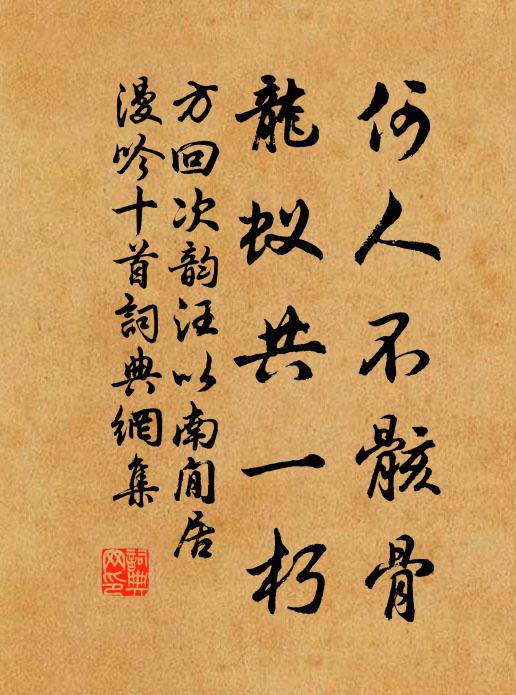 何人不骸骨
龍蚁共一朽
方回次韵汪以南閒居
漫吟十首詞典網集
詞典網印